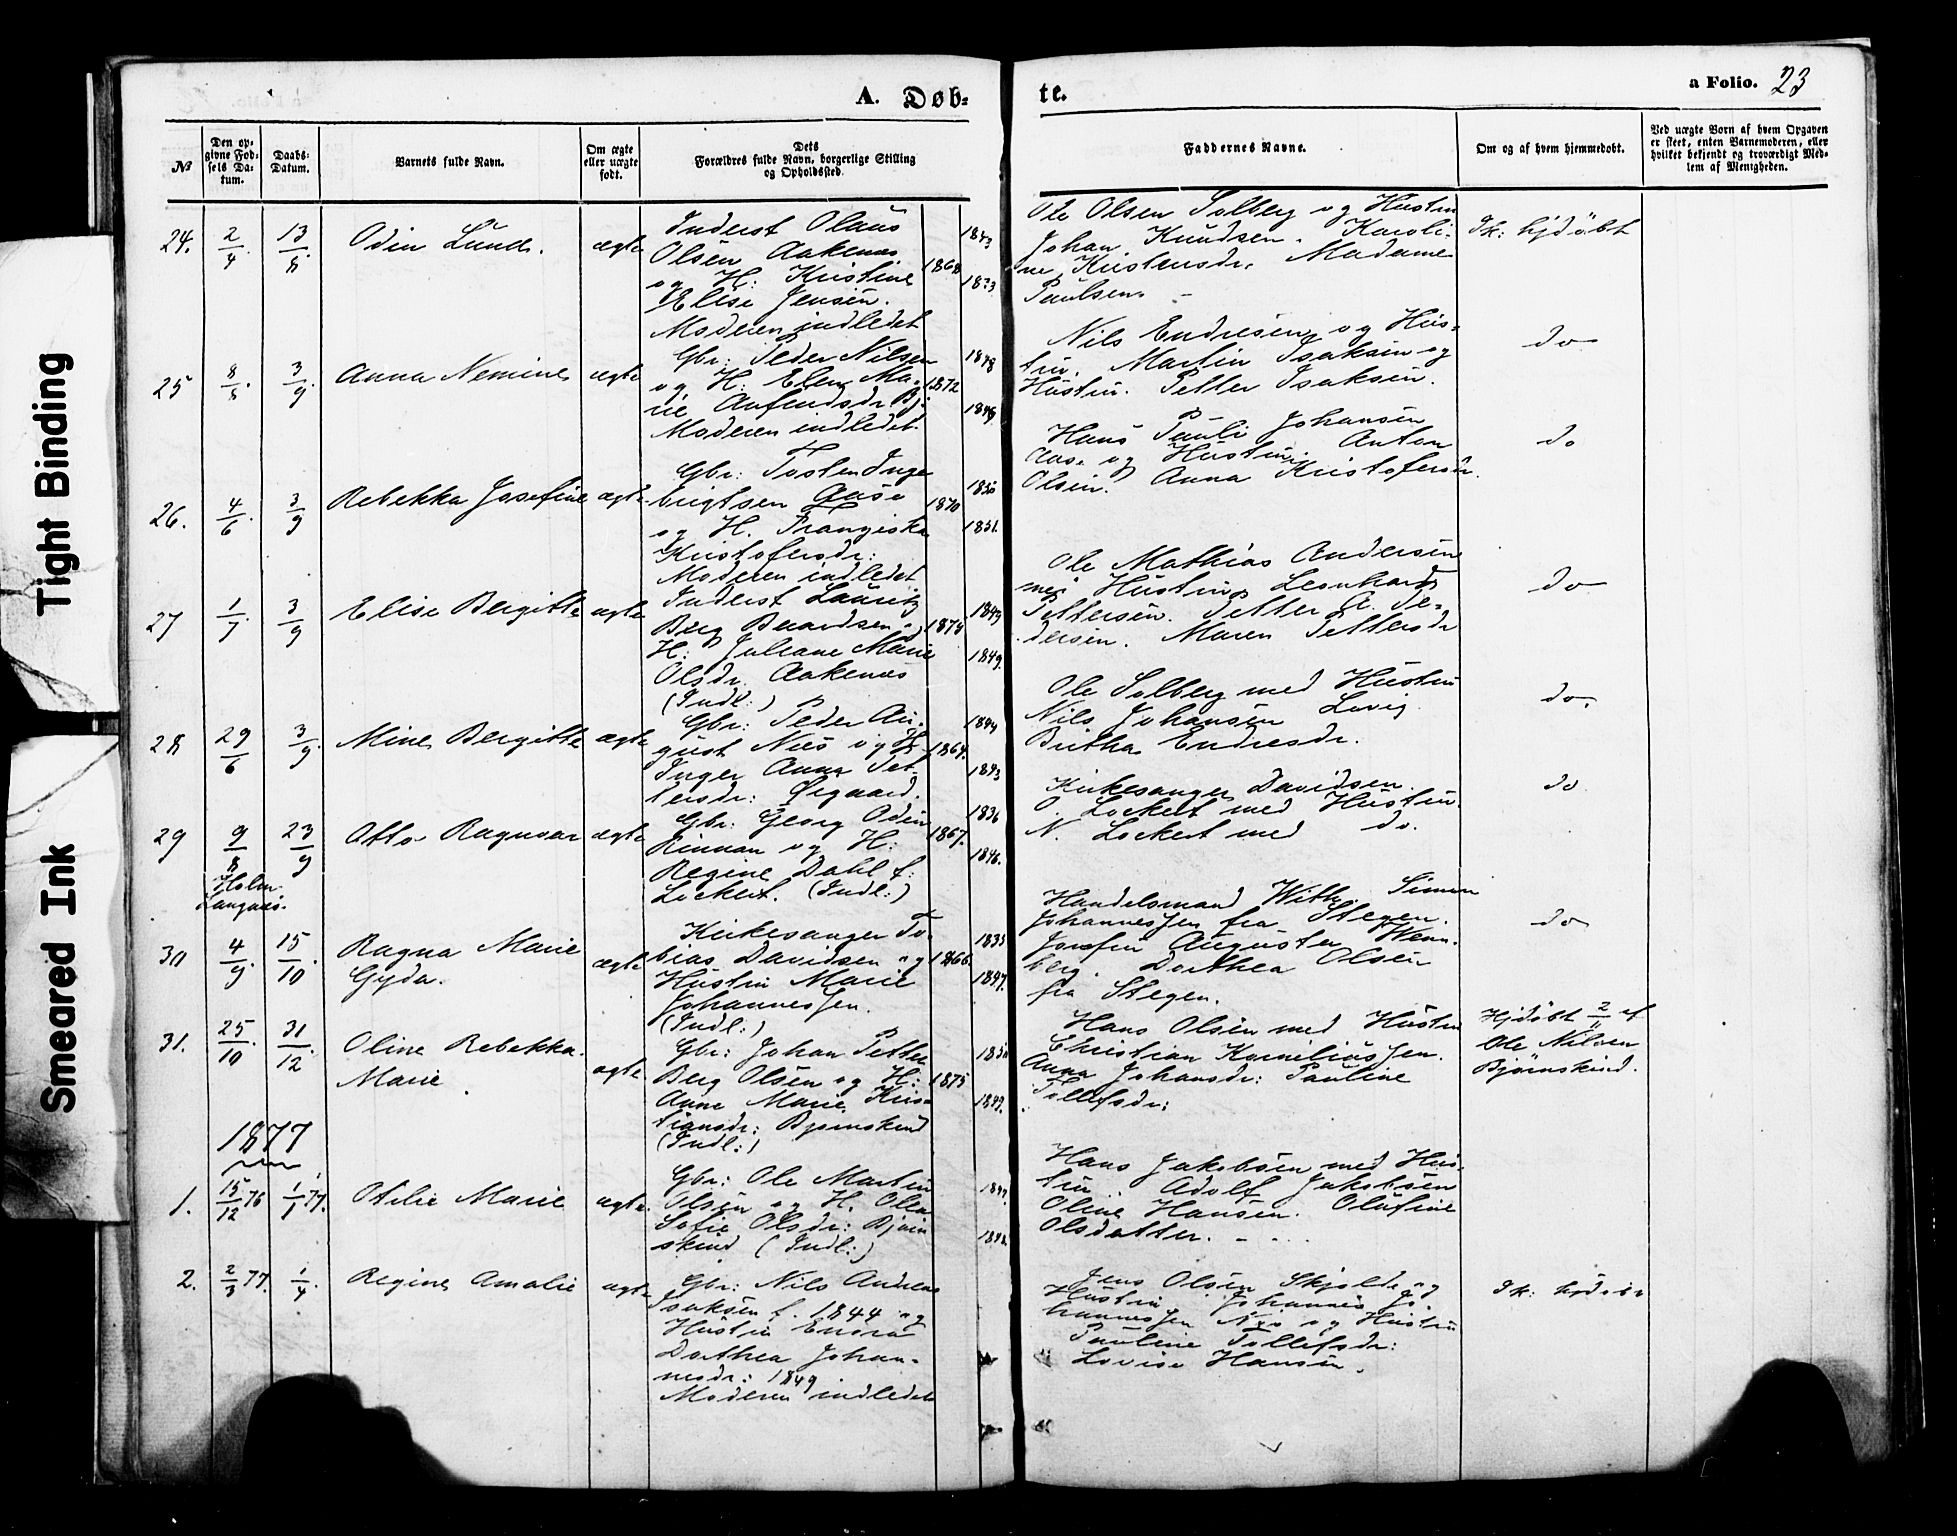 Tight Binding
Smeared Ink
A. Døb=
te.
a Folio. 23
No
Den op=
givne Fød=
sels Da=
tum.
Daabs=
Datum.
Barnets fulde Navn.
Om ægte
eller uægte
født.
Dets
Forældres fulde Navn, borgerlige Stilling
og Opholdssted
Faddernes Navne.
Om og af hvem hjemmedøbt.
Ved uægte Børn af hvem Opgaven
er skeet, enten Barnemoderen, eller
hvilket bekjendt og troværdigt Med=
lem af Menigheden.
24. 2/4 13/8. Odin Lund. ægte
Inderst Olaus
Olsen Aakenæs
og H: Kristine
Elise Jensen.
Moderen indledet
1868 1843
1833
Ole Olsen Solberg og Hustru
Johan Knudsen. Karoli-
ne Kristensdr. Madame
Paulsen.
Ik: hjdøbt
25 8/8 3/9 Anna Nemine ægte
Gbr: Peder Nilsen
og H: Elen Ma-
rie Anfendsdr. Bj.
Moderen indledet
1872 1848
1848
Nils Endresen og Hus-
tru. Martin Isaksen og
Hustru. Petter Isaksen.
do
26. 4/6. 3/9 Rebekka Josefine ægte
Gbr: Tosten Inge
brigtsen Aase
og H. Frangiska
Kristofersdr:
Moderen indledet
1870 1850
1851.
Hans Pauli Johansen
Aas. og Hustru. Anton
Olsen. Anna Kristofersdr.
do
27 1/7. 3/9 Elise Bergitte ægte
Inderst Lauritz
Berg Berntsen og
H: Juliane Marie
Olsdr. Aakenæs
(Indl:)
1874 1849
1849.
Ole Mathias Andersen
med Hustru Leonhard
Pettersen. Petter A. Pe-
dersen. Maren Pettersdr
do
28 29/6 3/9. Mine Bergitte ægte
Gbr: Peder Au-
gust Niis og H.
Inger Anna Pet-
tersdr: Øigaard.
1864. 1844
1843
Ole Solberg med Hustru
Nils Johansen Lovig.
Britha Endresdr.
do.
29 9/8 23/9 Otto Ragnvar ægte
Holm
Langnæs.
Gbr: Georg Odin
Rinnan og H:
Regine Dahl f:
Lockert. (Indl:)
1867. 1836
1846.
Kirkesanger Davidsen.
O. Lockert med Hustru
N. Lockert med do.
do
30 4/9. 15/10 Ragna Marie
Gyda. ægte
Kirkesanger To-
bias Davidsen og
Hustru Marie
Johannessen.
(Indl:)
1866. 1835
1847.
Handelsmand With. Simon
Johannessen fra Stegen.
Josefin Augusta Wenn-
berg. Dorthea Olsen
fra Stegen.
do
31. 25/10. 31/12. Oline Rebekka.
Marie ægte
Gbr: Johan Petter
Berg Olsen og H:
Anne Marie Kris-
tiansdr: Bjørnskind
(Indl:)
1875 1850
1849.
Hans Olsen med Hustru
Christian Korneliussen.
Anna Johansdr: Pauline
Tollefsdr:
Hjdøbt 2/11 af
Ole Nilsen
Bjørnskind.
1877
1. 15/12 76 1/1 77. Otilie Marie ægte
Gbr: Ole Martin
Olsen og H. Olea
Sofie Olsdr: Bjørn
skind (Indl:)
1847.
1848.
Hans Jakobsen med Hus-
tru. Adolf Jakobsen
Oline Hansen. Olufine
Olsdatter.
2. 2/3 77. 1/4. Regine Amalie ægte
Gbr: Nils Andreas
Isaksen f. 1844 og
Hustru
Dorthea Johan-
nesdr: 1849
Moderen indledet
Jens Olsen Skjolde og
Hustru Johannes Jo-
hannessen Næs og Hustru
Pauline Tollefsdr:
Lovise Hansen.
Ik: hjdøbt